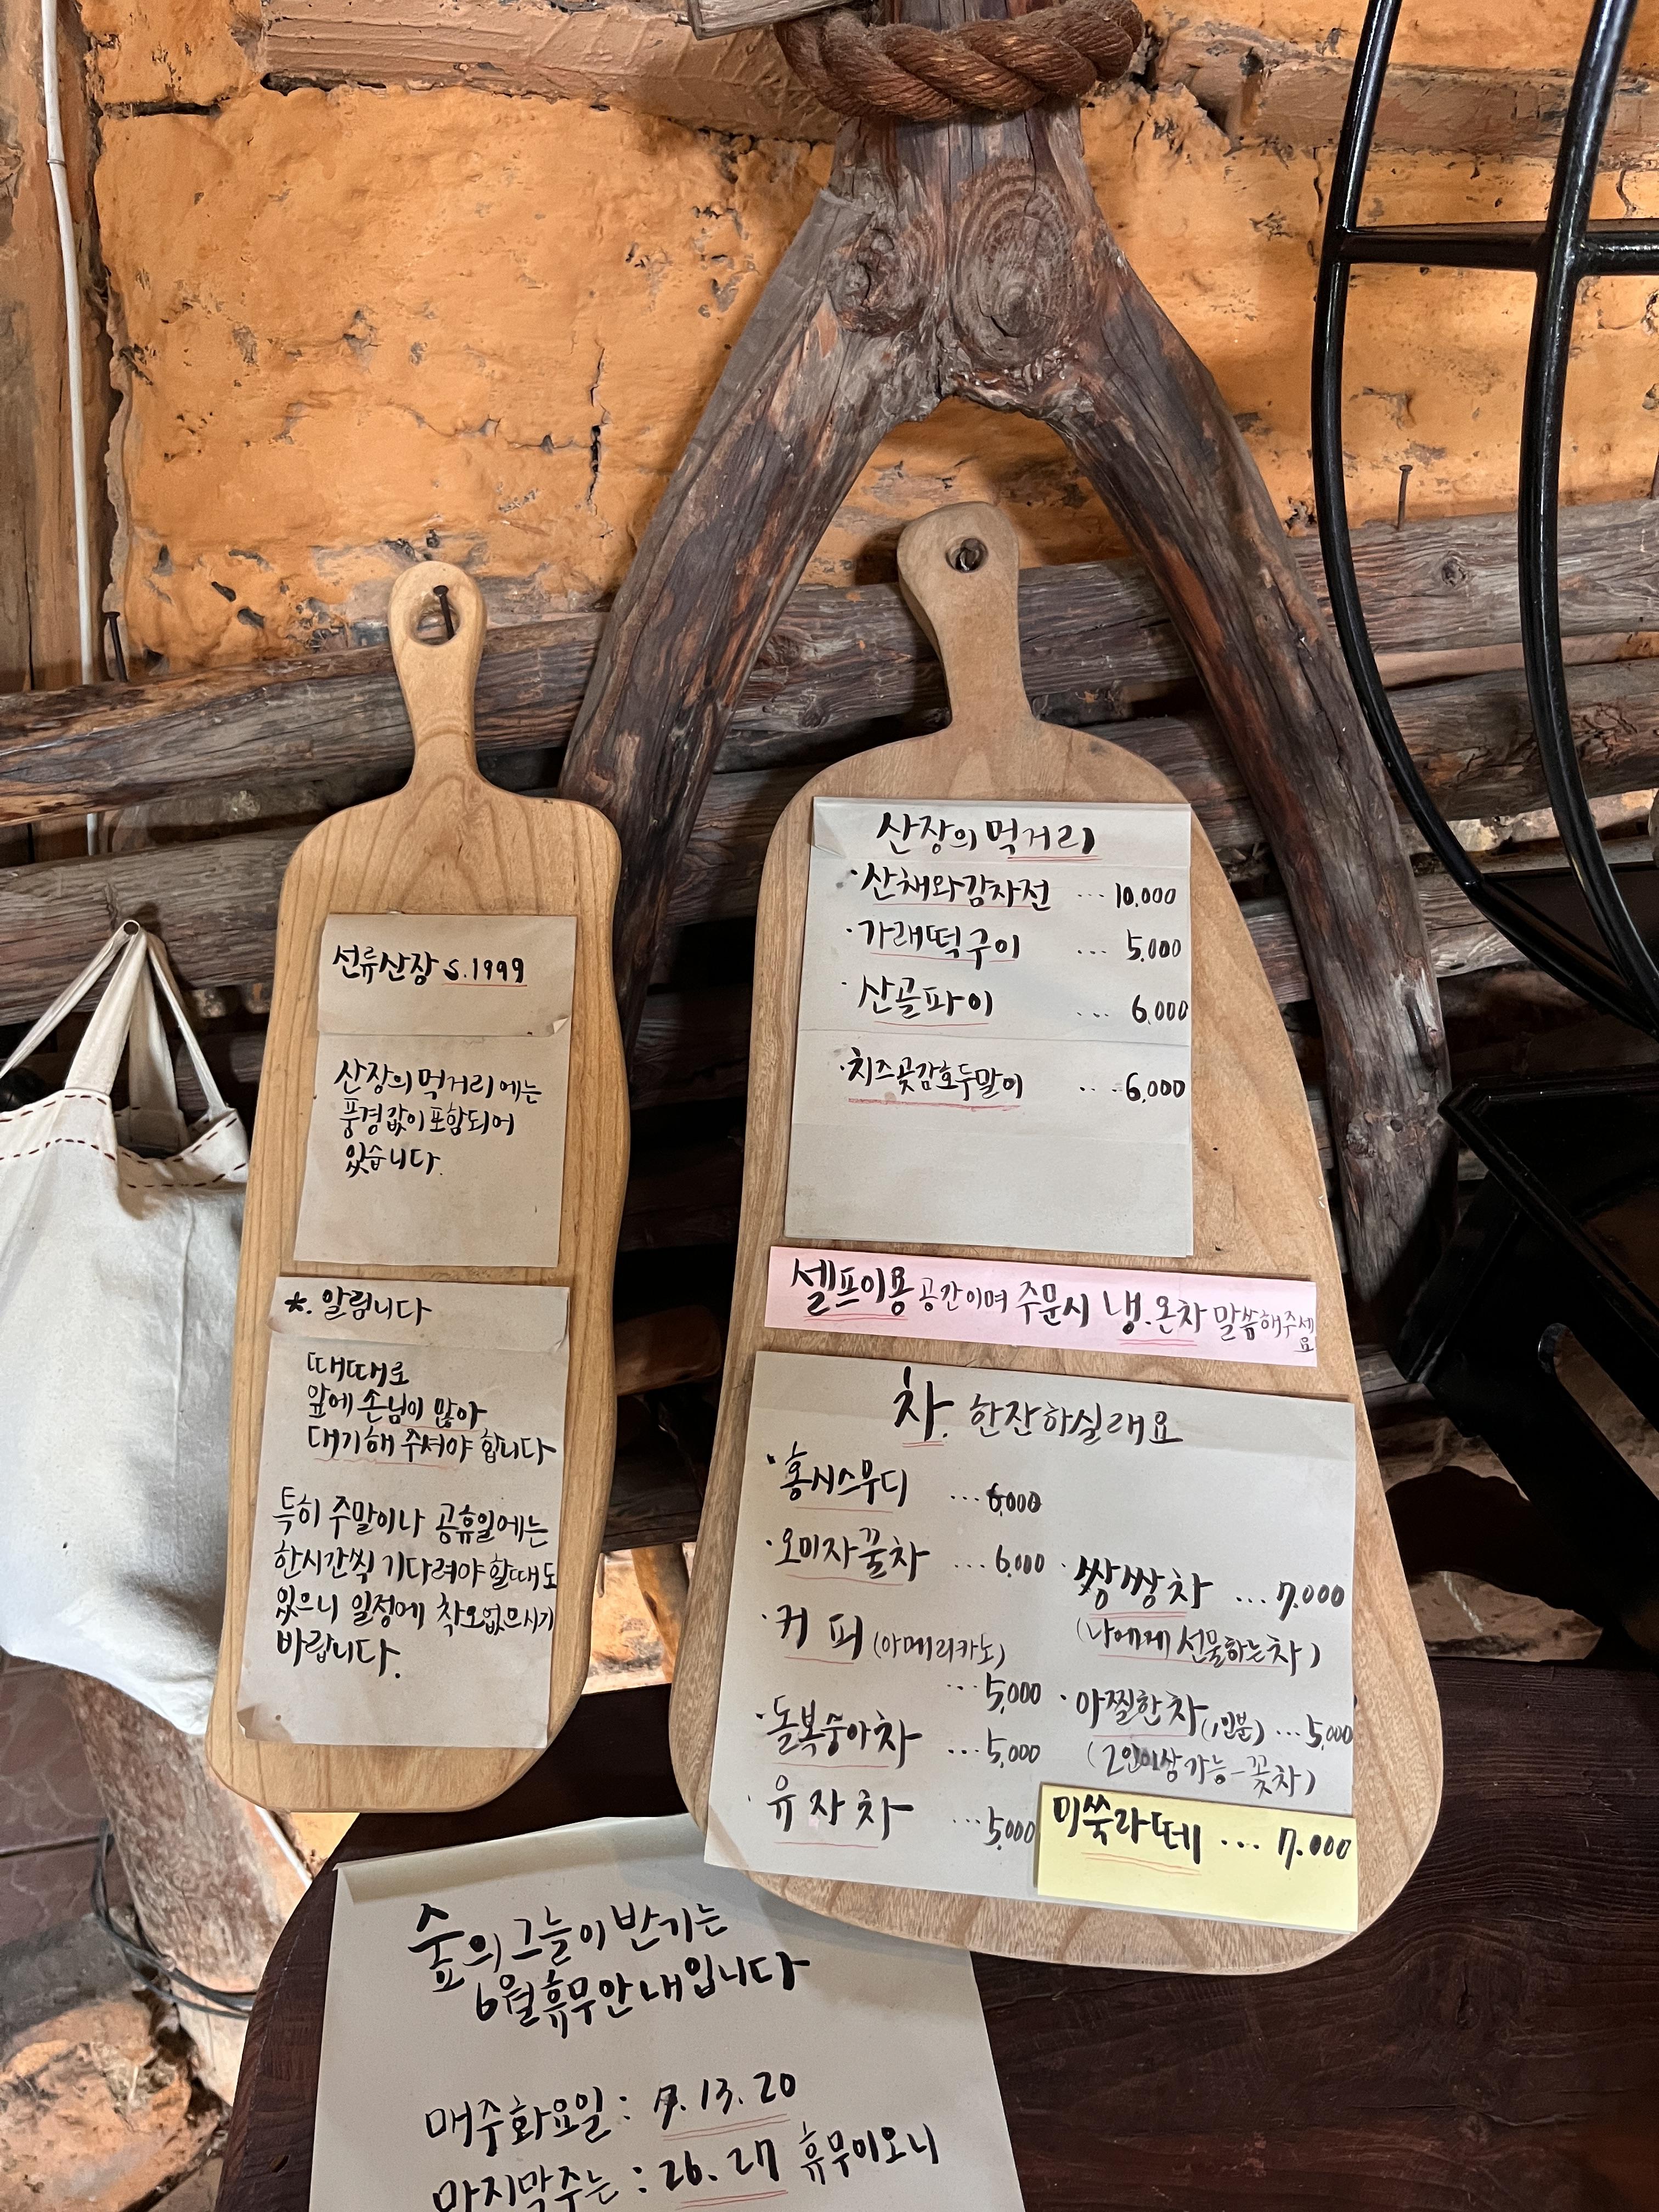 선류산장 S.1999
산장의 먹거리에는
풍경값이 포함되어
있습니다.
*. 알림니다
때때로
앞에 손님이 많아
대기해 주셔야 합니다
특히 주말이나 공휴일에는
한시간씩 기다려야 할때도
있으니 일정에 착오없으시기
바랍니다.
산장의 먹거리
·산채와감자전 ... 10,000
·가래떡구이 ... 5,000
·산골파이 ... 6,000
·치즈곶감호두말이 ... 6,000
셀프이용 공간이며 주문시 냉.온차 말씀해주세
요
차. 한잔하실래요
·홍시스무디 ... 6,000
·오미자꿀차 ... 6,000
·커피 (아메리카노)
... 5,000
·돌복숭아차 ... 5,000
·유자차 ... 5,000
·쌍쌍차 ... 7.000
(나에게 선물하는차)
·아찔한차(1인분) ... 5,000
(2인이상가능-꽃차)
미쑥라떼 ... 7.000
숲의 그늘이 반기는
6월휴무안내입니다
매주화요일 : 7. 13. 20
마지막주는 : 26. 27 휴무이오니